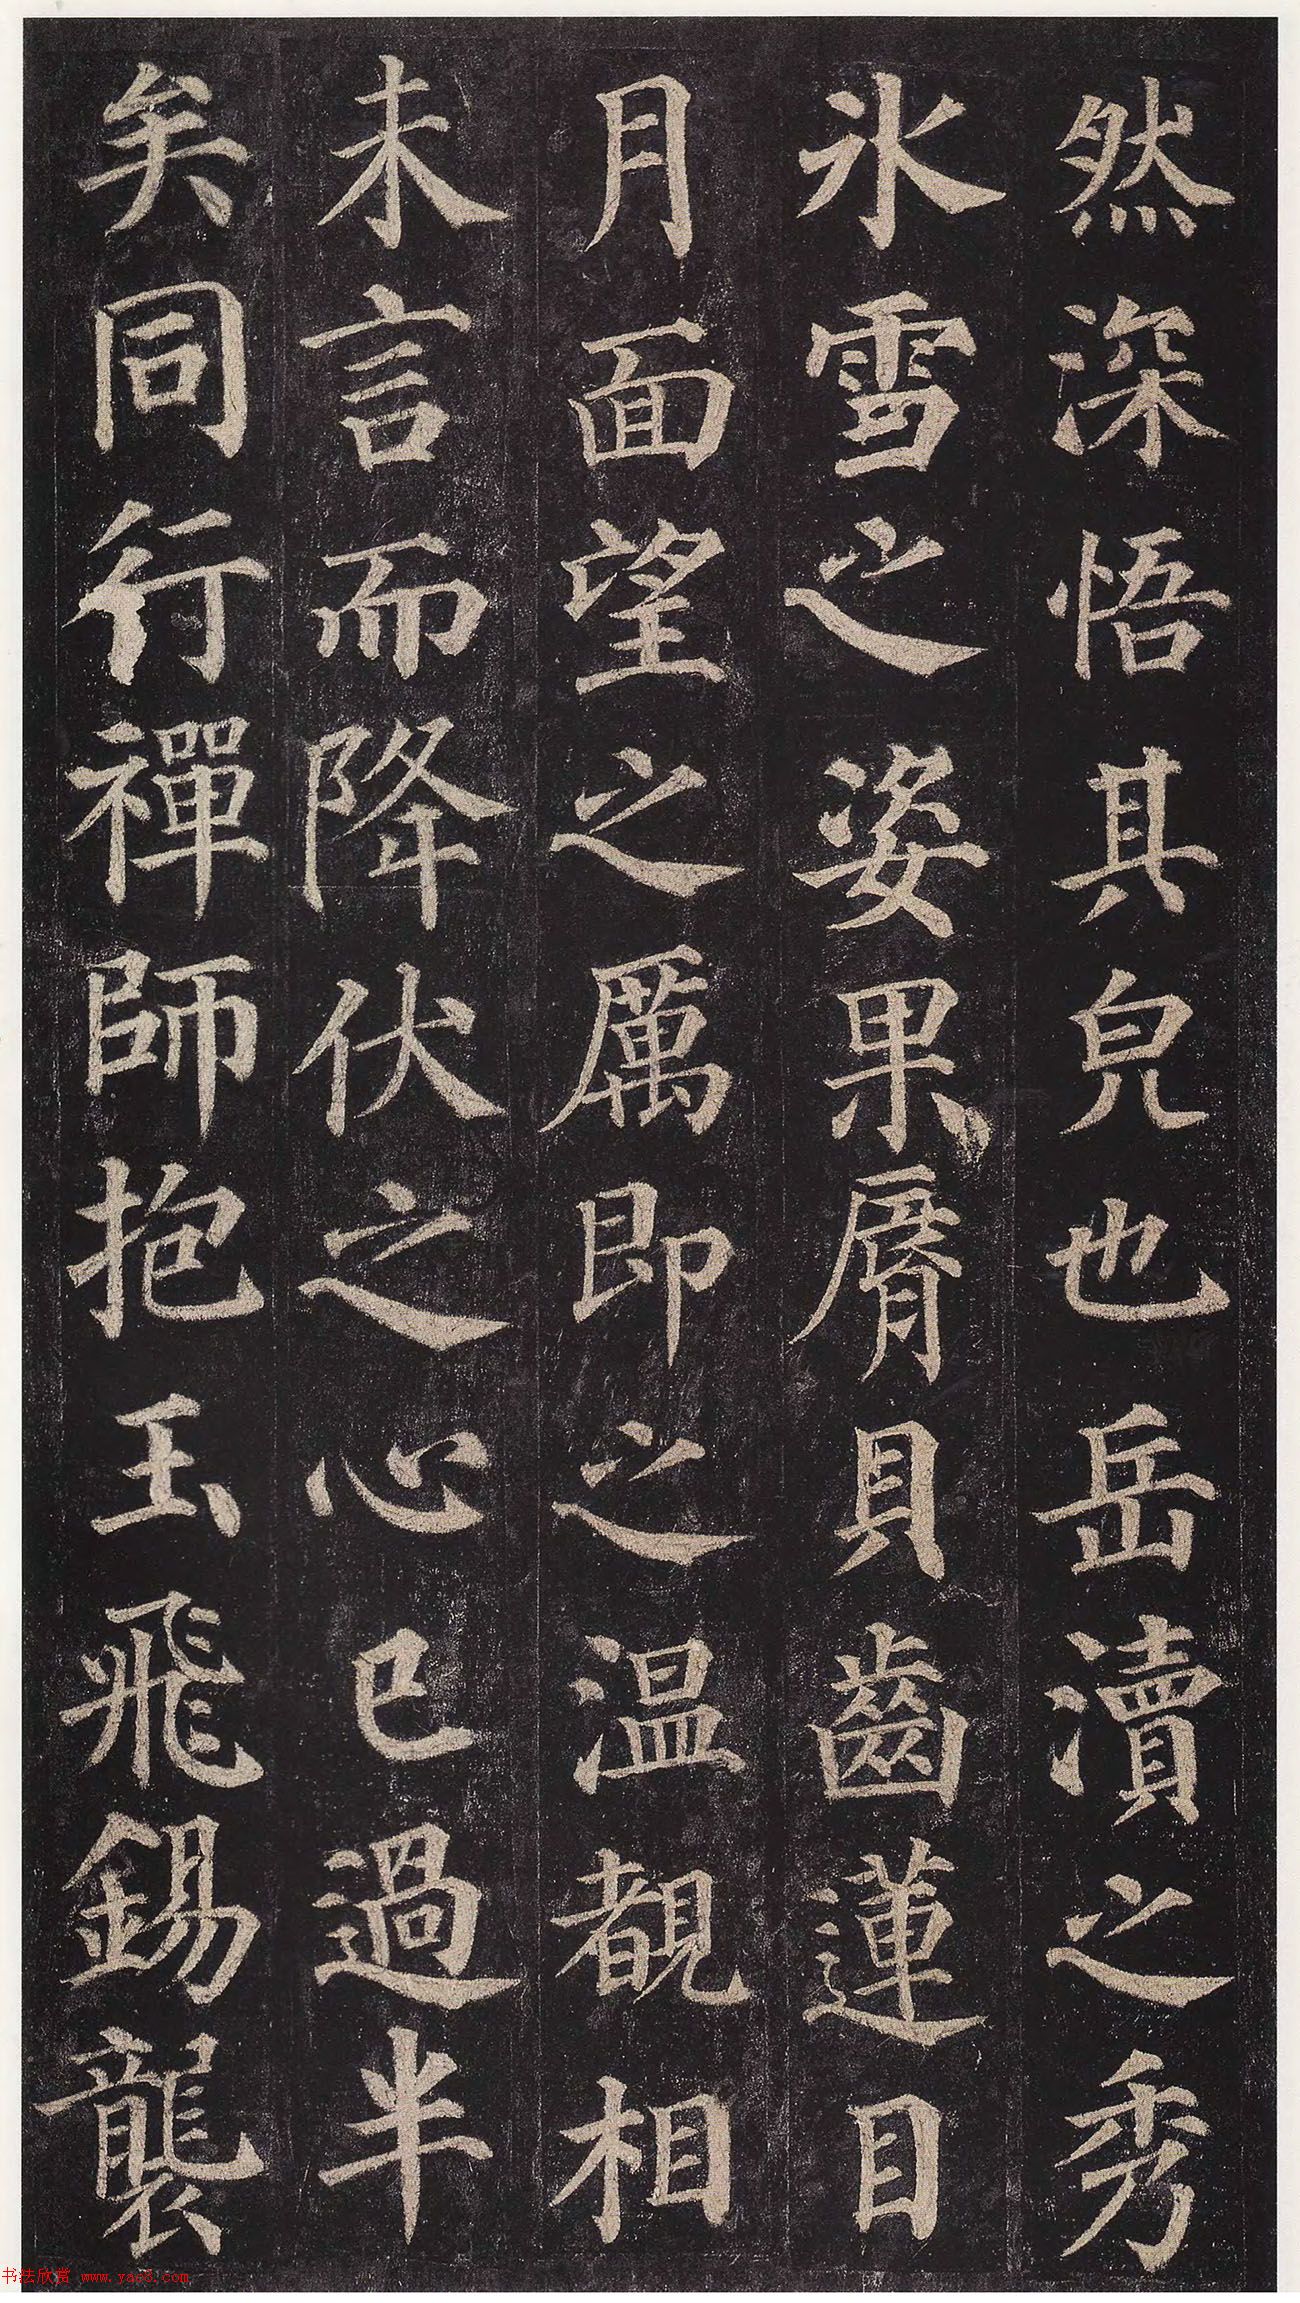 然深悟其皃也岳瀆之秀
氷雪之姿果脣貝齒蓮目
月面望之厲即之温覩相
未言而降伏之心已過半
矣同行禪師抱玉飛錫襲
书法欣赏 www.yac8.com